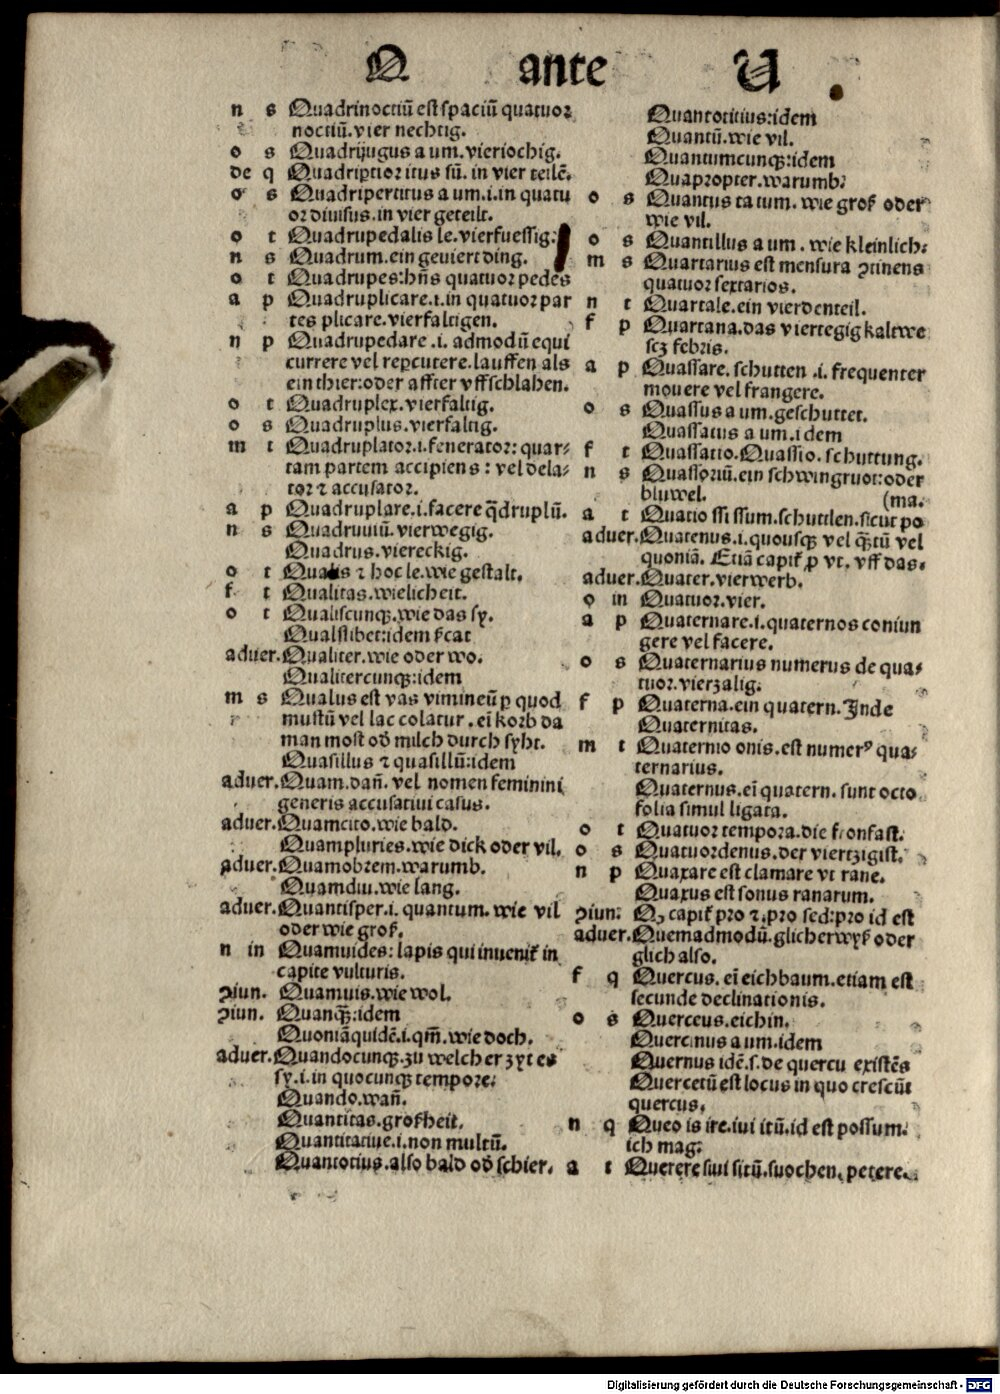 Q ante U
n s Quadrinoctiū est spaciū quatuor
noctiū. vier nechtig.
o s Quadrijugus a um. vieriochig.
de q Quadripertior itus sū. in vier teilē.
o s Quadripertitus a um .i. in quatu
or diuisus. in vier geteilt.
o t Quadrupedalis le. vierfuessig.
n s Quadrum. ein geuiert ding.
o t Quadrupes: hn̄s quatuor pedes
a p Quadruplicare .i. in quatuor par
tes plicare. vierfaltigen.
n p Quadrupedare .i. admodū equi
currere vel repercutere. lauffen als
ein thier: oder affter vffschlahen.
o t Quadruplex. vierfaltig.
o s Quadruplus. vierfaltig.
m t Quadruplator .i. fenerator: quar-
tam partem accipiens: vel dela-
tor ⁊ accusator.
a p Quadruplare .i. facere q̄druplū.
n s Quadruuiū. vierwegig.
Quadrus. viereckig.
o t Qualis ⁊ hoc le. wie gestalt.
f t Qualitas. wielicheit.
o t Qualiscunqꝫ. wie das sy.
Qualslibet: idem scat
aduer. Qualiter. wie oder wo.
Qualitercunqꝫ: idem
m s Qualus est vas vimineū ꝑ quod
mustū vel lac colatur. ei korb da
man most od̄ milch durch syht.
Quasillus ⁊ quasillū: idem
aduer. Quam. dan̄. vel nomen feminini
generis accusatiui casus.
aduer. Quamcito. wie bald.
Quampluries. wie dick oder vil.
aduer. Quamobrem. warumb.
Quamdiu. wie lang.
aduer. Quantisper .i. quantum. wie vil
oder wie groß.
n in Quamuides: lapis qui inuenit in
capite vulturis.
ꝯiun. Quamuis. wie wol.
ꝯiun. Quanqꝫ: idem
Quoniāquidē .i. qm̄. wie doch.
aduer. Quandocunqꝫ. zu welcher zyt es
sy .i. in quocunqꝫ tempore.
Quando. wan̄.
Quantitas. großheit.
Quantitatiue .i. non multū.
Quantotius. also bald od̄ schier.
Quantotitius: idem
Quantū. wie vil.
Quantumcunqꝫ: idem
Quapropter. warumb.
o s Quantus ta tum. wie groß oder
wie vil.
o s Quantillus a um. wie kleinlich.
m s Quartarius est mensura ꝯtinens
quatuor sextarios.
n t Quartale. ein vierdenteil.
f p Quartana. das viertegig kaltwe
scꝫ febris.
a p Quassare. schutten .i. frequenter
mouere vel frangere.
o s Quassus a um. geschuttet.
Quassatus a um. idem
f t Quassatio. Quassio. schuttung.
n s Quassoriū. ein schwingruot: oder
bluwel. (ma.
a t Quatio ssi ssum. schuttlen. sicut po
aduer. Quatenus .i. quousqꝫ vel q̄tū vel
quoniā. Etiā capit ꝓ vt. vff das.
aduer. Quater. vierwerb.
o in Quatuor. vier.
a p Quaternare .i. quaternos coniun
gere vel facere.
o s Quaternarius numerus de qua-
tuor. vierzalig.
f p Quaterna. ein quatern. Inde
Quaternitas.
m t Quaternio onis. est numerꝰ qua-
ternarius.
Quaternus. ei quatern. sunt octo
folia simul ligata.
o t Quatuor tempora. die fronfast.
o s Quatuordenus. der viertzigist.
n p Quaxare est clamare vt rane.
Quaxus est sonus ranarum.
ꝯiun. Qꝫ capit pro ⁊. pro sed: pro id est
aduer. Quemadmodū. glicherwyß oder
glich also.
f q Quercus. ei eichbaum. etiam est
secunde declinationis.
o s Querceus. eichin.
Quercinus a um. idem
Quernus idē. s. de quercu existēs
Quercetū est locus in quo crescūt
quercus.
n q Queo is ire. iui itū. id est possum.
ich mag.
a t Querere siui sitū. suochen. petere.
Digitalisierung gefördert durch die Deutsche Forschungsgemeinschaft - DFG